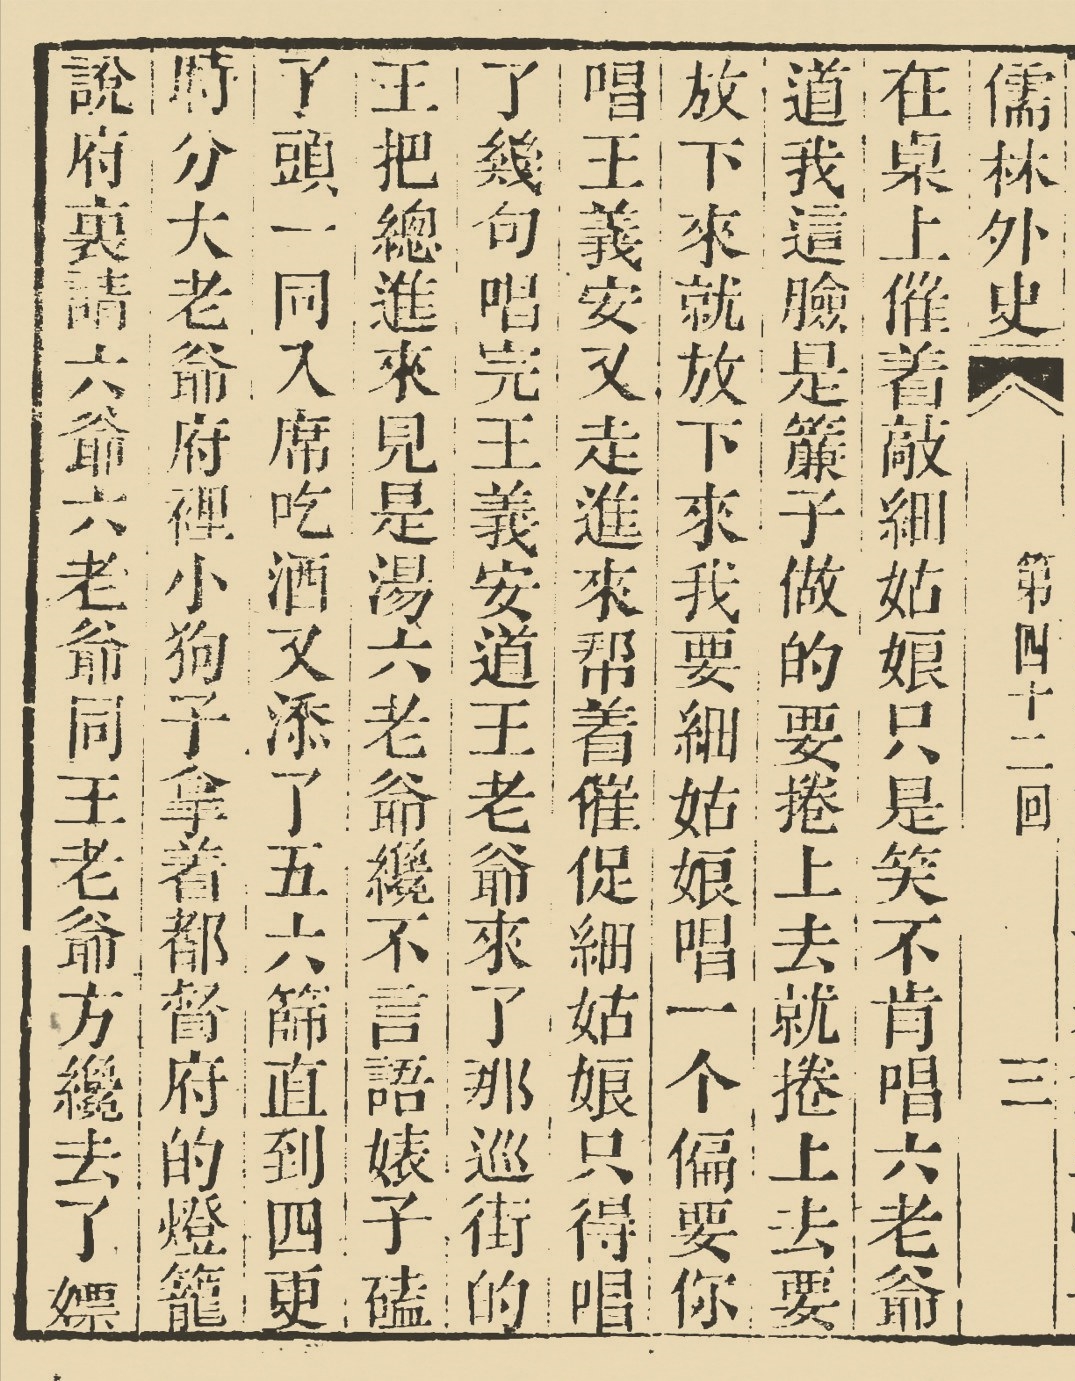 儒林外史 第四十二回 三
在桌上催着敲細姑娘只是笑不肯唱六老爺
道我這臉是簾子做的要捲上去就捲上去要
放下來就放下來我要細姑娘唱一个偏要你
唱王義安又走進來帮着催促細姑娘只得唱
了幾句唱完王義安道王老爺來了那巡街的
王把總進來見是湯六老爺纔不言語婊子磕
了頭一同入席吃酒又添了五六篩直到四更
時分大老爺府裡小狗子拿着都督府的燈籠
說府裏請六爺六老爺同王老爺方纔去了嫖